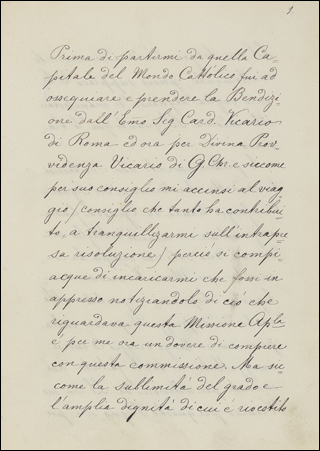 1
Prima di partirmi da quella Ca-
pitale del Mondo Cattolico fui ad
ossequiare e prendere la Bendizi-
one dall'Emo Sig Card. Vicario
di Roma ed ora per Divina Prov-
videnza Vicario di G. Chr. e siccome
per suo consiglio mi accinsi al viag-
gio (consiglio che tanto ha contribui-
to, a tranquillizarmi sull'intrapre-
sa risoluzione) perciò si compi-
acque di incaricarmi che fossi in
appresso notiziandolo di ciò che
riguardava questa Missione Aplca
e per me era un dovere di compiere
con questa commissione. Ma sic-
come la sublimità del grado e
l'amplia dignità di cui è rivestito